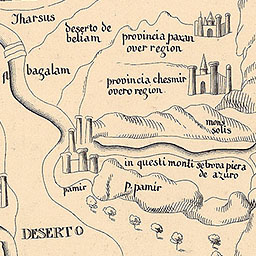 Tharsus
deserto de
beliam
provincia paxan
over region
bagalam
provincia chesmir
overo region
mons
solis
in questi monti se trova piera
de azuro
pamir
p. pamir
DESERTO